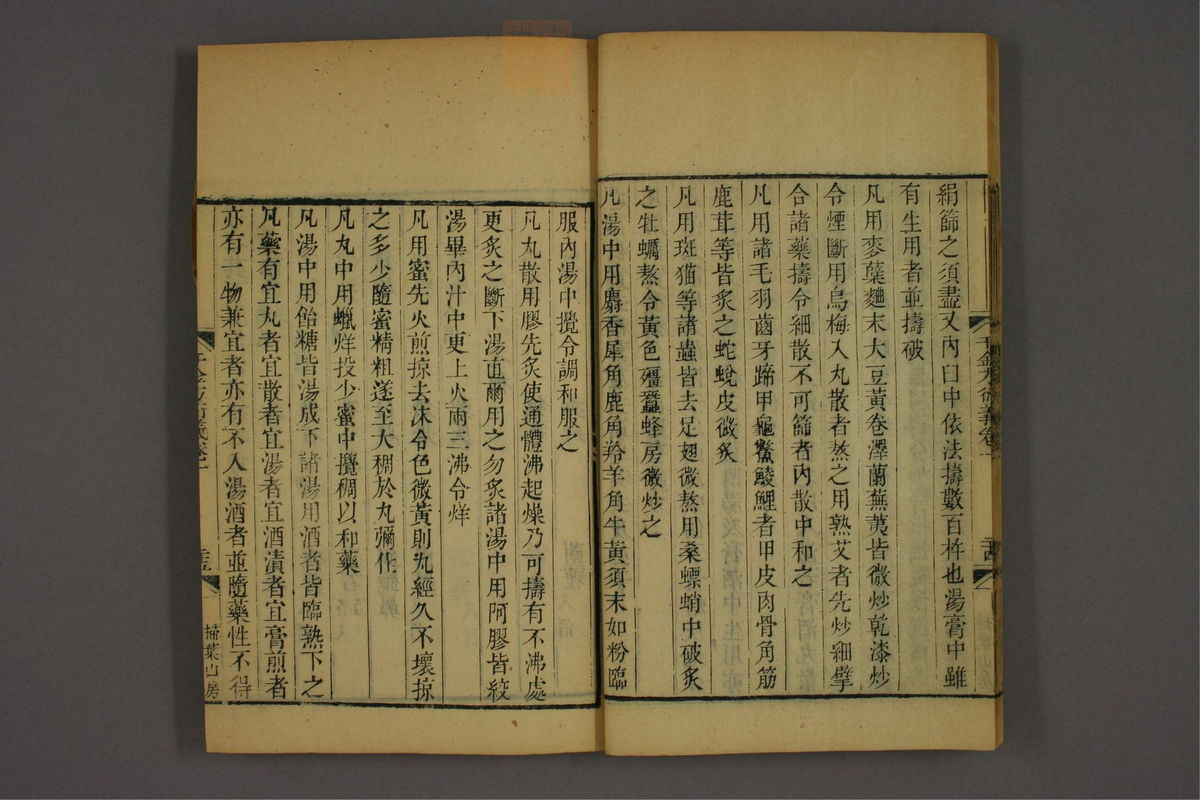 絹篩之須盡又內臼中依法擣數百杵也湯膏中雖
有生用者並擣破
凡用麥蘖麯末大豆黃卷澤蘭蕪荑皆微炒乾漆炒
令煙斷用烏梅入丸散者熬之用熟艾者先炒細擘
合諸藥擣令細散不可篩者內散中和之
凡用諸毛羽齒牙蹄甲龜鱉鯪鯉者甲皮肉骨角筋
鹿茸等皆炙之蛇蛻皮微炙
凡用斑猫等諸蟲皆去足翅微熬用桑螵蛸中破炙
之牡蠣熬令黃色殭蠶蜂房微炒之
凡湯中用麝香犀角鹿角羚羊角牛黃須末如粉臨
服內湯中攪令調和服之
凡丸散用膠先炙使通體沸起燥乃可擣有不沸處
更炙之斷下湯直爾用之勿炙諸湯中用阿膠皆絞
湯畢內汁中更上火兩三沸令烊
凡用蜜先火煎掠去沫令色微黃則丸經久不壞掠
之多少隨蜜精粗遂至大稠於丸彌佳
凡丸中用蠟烊投少蜜中攪稠以和藥
凡湯中用飴糖皆湯成下諸湯用酒者皆臨熟下之
凡藥有宜丸者宜散者宜湯者宜酒漬者宜膏煎者
亦有一物兼宜者亦有不入湯酒者並隨藥性不得
千金方衍義卷一
掃葉山房